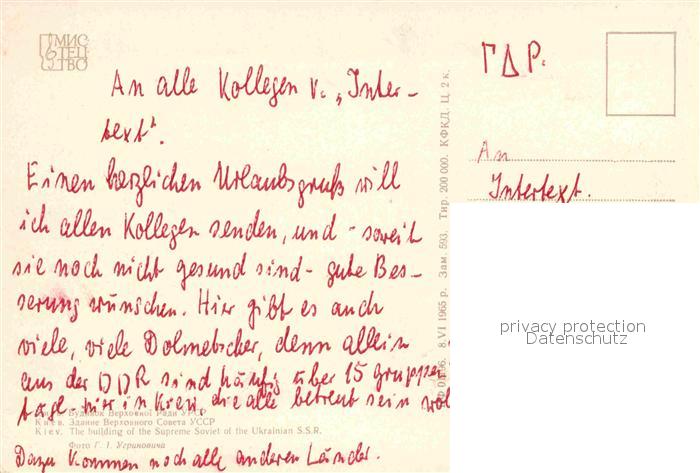 МИС
ТЕЦ
ТВО
An alle Kollegen v. „Inter-
text".
Einen herzlichen Urlaubsgruß will
ich allen Kollegen senden, und - soweit
sie noch nicht gesund sind - gute Bes-
serung wünschen. Hier gibt es auch
viele, viele Dolmetscher, denn allein
aus der DDR sind häufig über 15 Gruppen
tägl. hier in Kiew, die alle betreut sein wol
Київ. Будинок Верховної Ради УРСР
Киев. Здание Верховного Совета УССР
Kiev. The building of the Supreme Soviet of the Ukrainian S.S.R.
Фото Г. І. Угриновича
Dazu kommen noch alle anderen Länder.
8.VI 1965 р. Зам. 593. Тир. 200 000. КФКД. Ц. 2 к.
ГДР.
An
Intertext.
privacy protection
Datenschutz